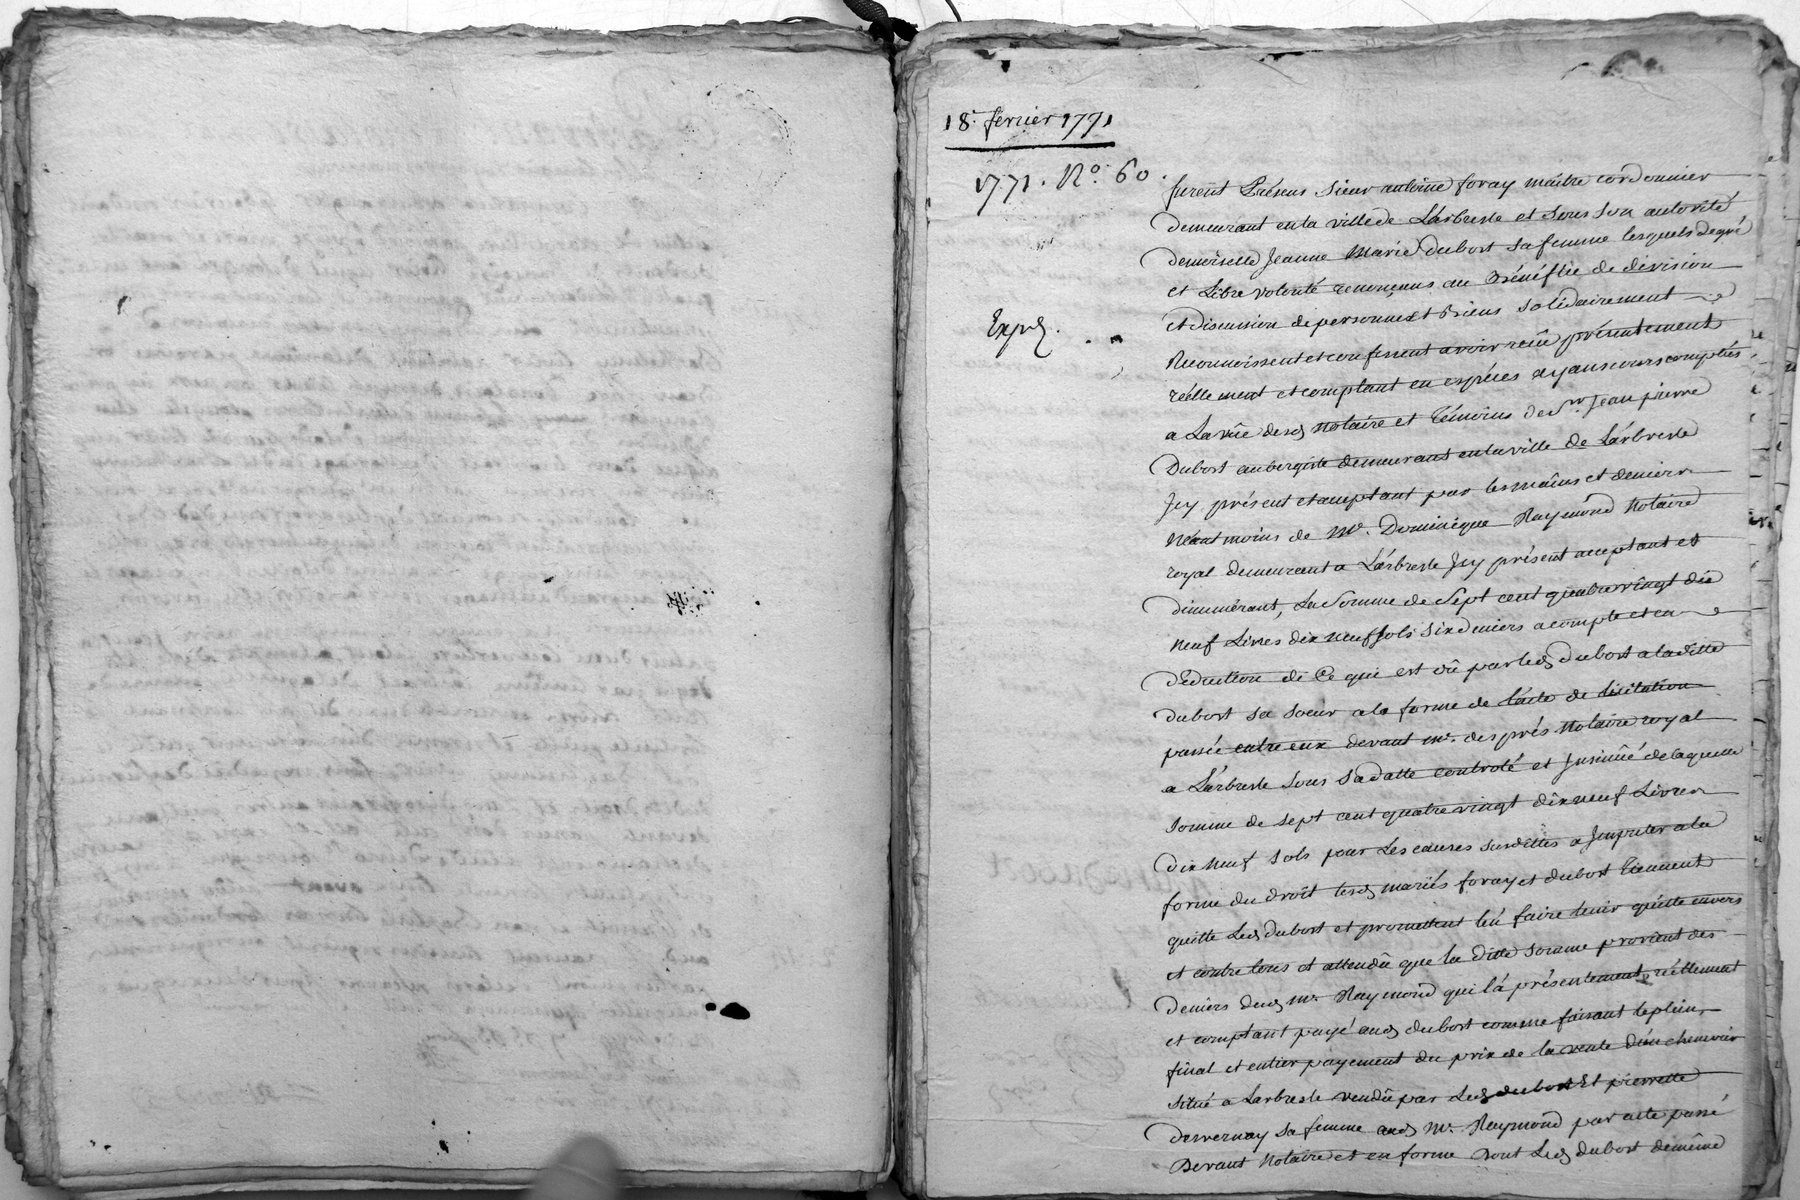 18. fevrier 1771
1771. No. 60.
Expd.
furent Présens sieur antoine foray maitre cordonnier
demeurant en la ville de Larbresle et sous son autorité
demoiselle Jeanne Marie dubost sa femme lesquels de gré
et Libre volonté renonçans au Bénéfice de division
et discussion de personne et Biens solidairement
Reconnoissent et confessent avoir reçû présentement
réellement et comptant en espéces ayans cours comptées
a La vûe desd notaire et témoins de Sr. Jean pierre
Dubost aubergiste demeurant en la ville de Larbresle
Icy présent et acceptant par les mains et deniers
néantmoins de Me. Dominique Raymond Notaire
royal demeurant a Larbresle Icy présent acceptant et
dinumérant, La Somme de Sept cent quatre vingt dix
neuf Livres dix neuf sols six deniers a compte et en
déduction de Ce qui est dû par led dubost a la ditte
dubost sa soeur a la forme de l'acte de licitation
passée entre eux devant me. després Notaire royal
a Larbresle sous sa datte controlé et Insinué de laquelle
somme de sept cent quatre vingt dix neuf Livres
dix neuf sols pour Les causes susdittes a Imputer a la
forme du droit lesd mariés foray et dubost tiennent
quitte Led dubost et promettent l'en faire tenir quitte envers
et contre tous et attendû que la ditte somme provient des
deniers dud me Raymond qui l'a présentement, réellement
et comptant payé aud dubost comme faisant le plein,
final et entier payement du prix de la vente d'un chenevier
situé a Larbresle vendû par Led dubost Et pierrette
duvernay sa femme aud Me. Raymond par acte passé
Devant Notaire et en forme Dont Led dubost demême